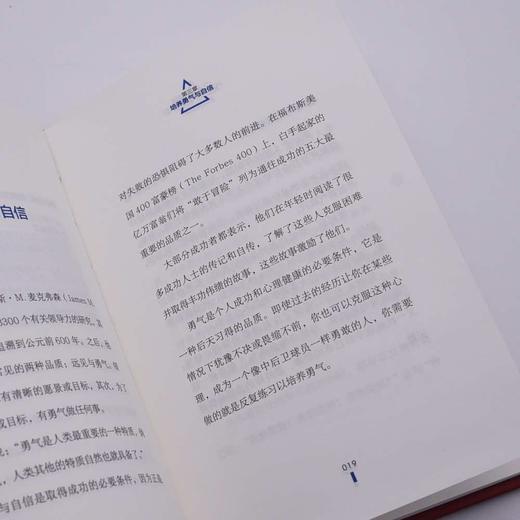 自信
斯·M.麦克弗森(James M.
3300个有关领导力的研究。其
追溯到公元前600年。之后,他
常见的两种品质:远见与勇气。
有清晰的愿景或目标,其次,为了
或目标,有勇气做任何事。
说:“勇气是人类最重要的一种特质,倘
,人类其他的特质自然也就具备了。”
与自信是取得成功的必要条件,因为正是
第二章
培养勇气与自信
对失败的恐惧阻碍了大多数人的前进。在福布斯美
国400富豪榜(The Forbes 400)上,白手起家的
亿万富翁们将“敢于冒险”列为通往成功的五大最
重要的品质之一。
大部分成功者都表示,他们在年轻时阅读了很
多成功人士的传记和自传,了解了这些人克服困难
并取得丰功伟绩的故事,这些故事激励了他们。
勇气是个人成功和心理健康的必要条件,它是
一种后天习得的品质。即使过去的经历让你在某些
情况下犹豫不决或畏缩不前,你也可以克服这种心
理,成为一个像中后卫球员一样勇敢的人,你需要
做的就是反复练习以培养勇气。
019